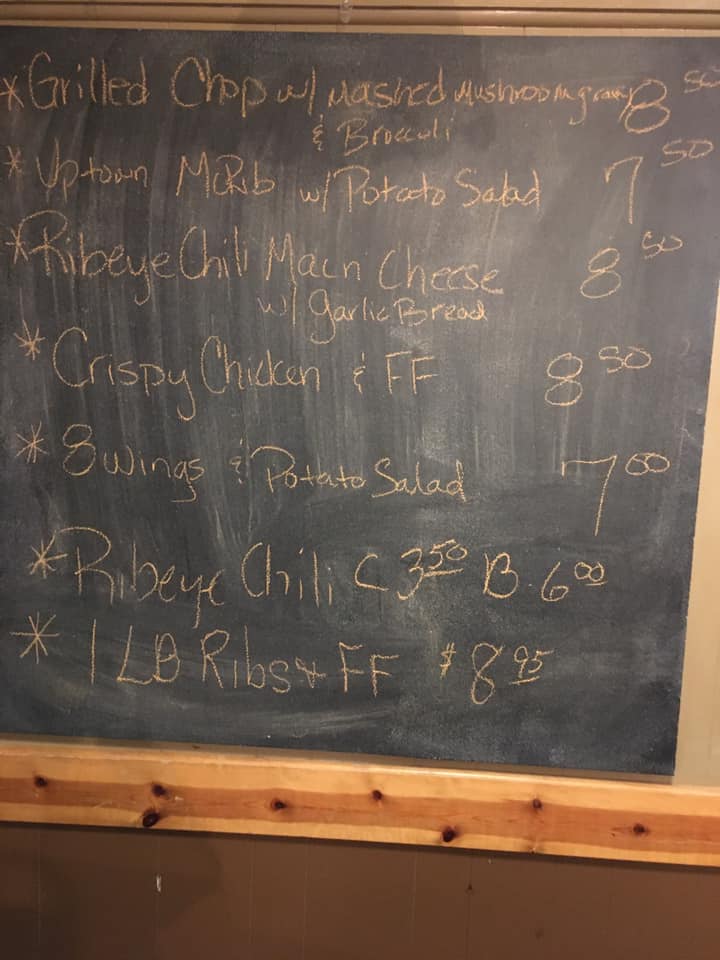 *Grilled Chop w/ Mashed Mushroom gravy 8 50
& Broccoli
* Uptown McRib w/ Potato Salad 7 50
*Ribeye Chili Mac n Cheese 8 50
w/ garlic Bread
* Crispy Chicken & FF 8 50
* 8 wings & Potato Salad 7 00
* Ribeye Chili C 3 50 B. 6 00
* 1 LB Ribs & FF $8 95